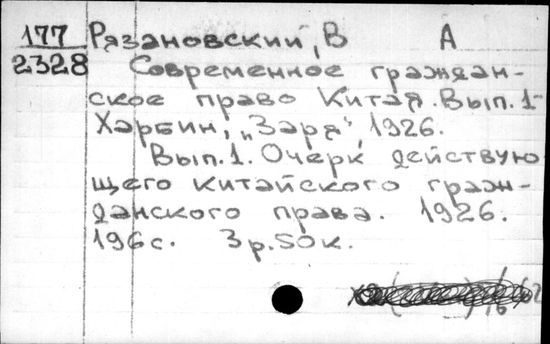 177 Рязановский, В А
2328 Современное граждан-
ское право Китая. Вып. 1-
Харбин, „Заря“, 1926.
Вып. 1. Очерк действую
щего китайского граж-
данского права. 1926.
196 с. 3 р. 50 к.